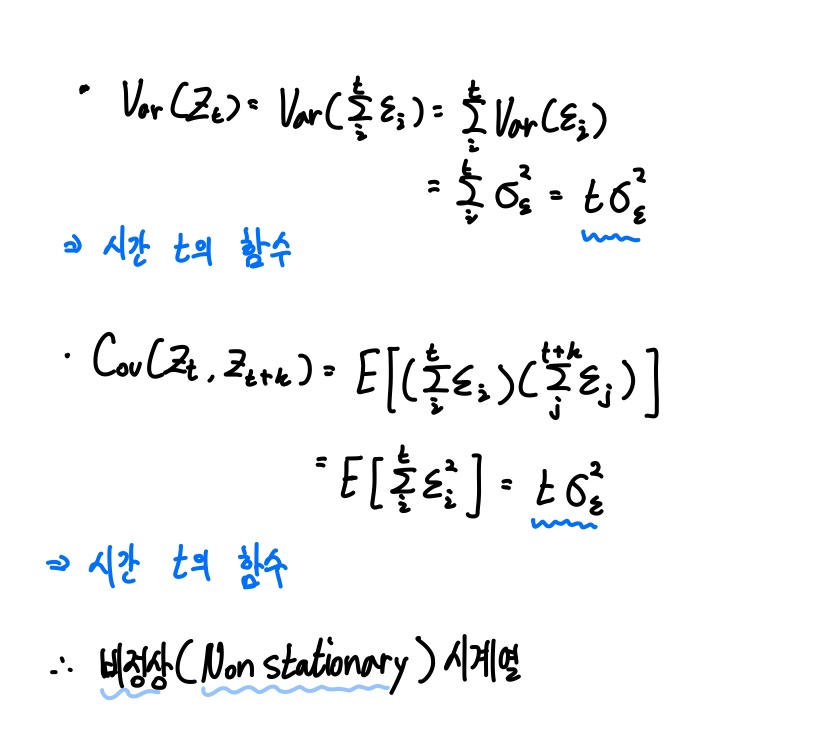 · Var(Z_t) = Var(∑_i^t ε_i) = ∑_i^t Var(ε_i)
= ∑_i^t σ_ε^2 = tσ_ε^2
⇒ 시간 t의 함수
· Cov(Z_t, Z_{t+k}) = E[(∑_i^t ε_i)(∑_j^{t+k} ε_j)]
= E[∑_i^t ε_i^2] = tσ_ε^2
⇒ 시간 t의 함수
∴ 비정상(Non stationary) 시계열